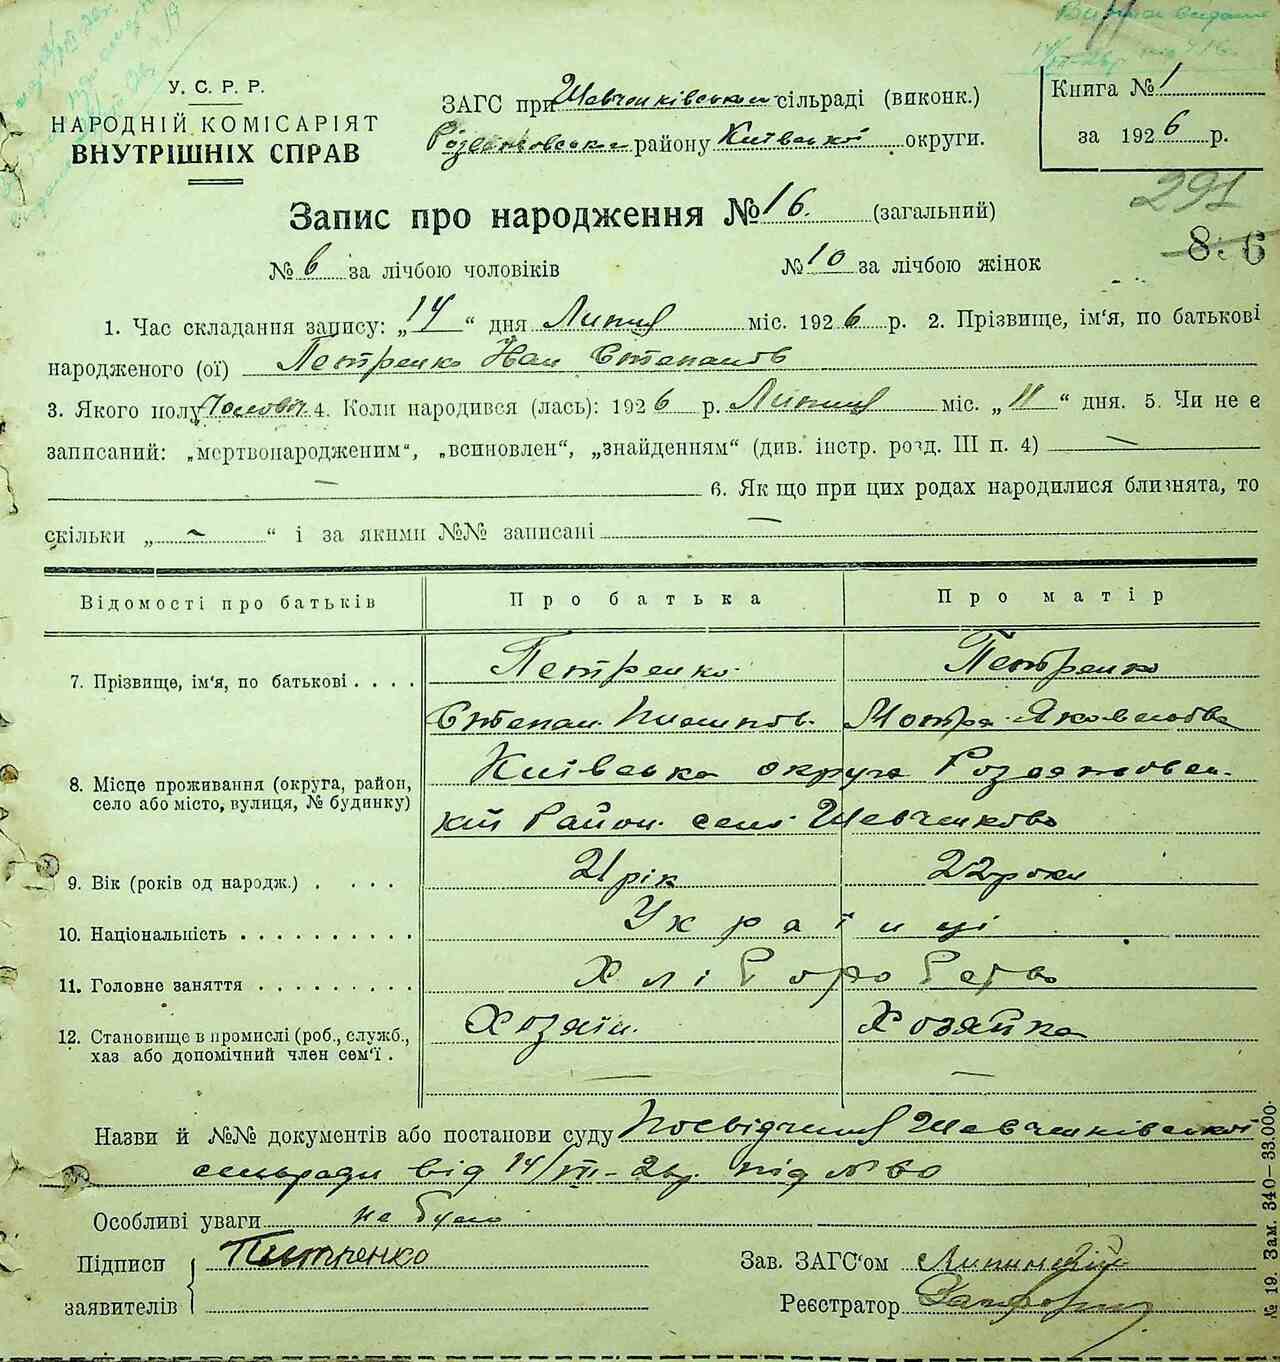 У. С. Р. Р.
НАРОДНІЙ КОМІСАРІЯТ
ВНУТРІШНІХ СПРАВ
ЗАГС при Шевченківській сільраді (виконк.)
району Київської округи.
Книга № 1
за 1926 р.
291
8 6
Запис про народження № 16. (загальний)
№ 6 за лічбою чоловіків № 10 за лічбою жінок
1. Час складання запису: „14“ дня Липня міс. 1926 р. 2. Прізвище, ім'я, по батькові
народженого (ої) Петренко Іван Степанов
3. Якого полу Чоловіч. 4. Коли народився (лась): 1926 р. Липня міс. „11“ дня. 5. Чи не є
записаний: „мертвонародженим“, „всиновлен“, „знайденням“ (див. інстр. розд. III п. 4) —
— 6. Як що при цих родах народилися близнята, то
скільки „ ~ “ і за якими №№ записані —
Відомості про батьків Про батька Про матір
7. Прізвище, ім'я, по батькові . . . . Петренко Петренко
Степан Мотря Яковлевна
8. Місце проживання (округа, район, село або місто, вулиця, № будинку) Київська округа Розважовсь-
кий Район село Шевченково
9. Вік (років од народж.) . . . . 21 рік 22 роки
10. Національність . . . . . . . . . . Українці
11. Головне заняття . . . . . . . . . Хліборобство
12. Становище в промислі (роб., служб., Хозяїн Хозяйка
хаз або допомічний член сем'ї .
— —
Назви й №№ документів або постанови суду Посвідчення Шевченківської
сільради від 14/VII-26р. під № 60
Особливі уваги не було
Підписи заявителів Петренко
Зав. ЗАГС'ом
Реєстратор
№ 19. Зам. 340—33.000.